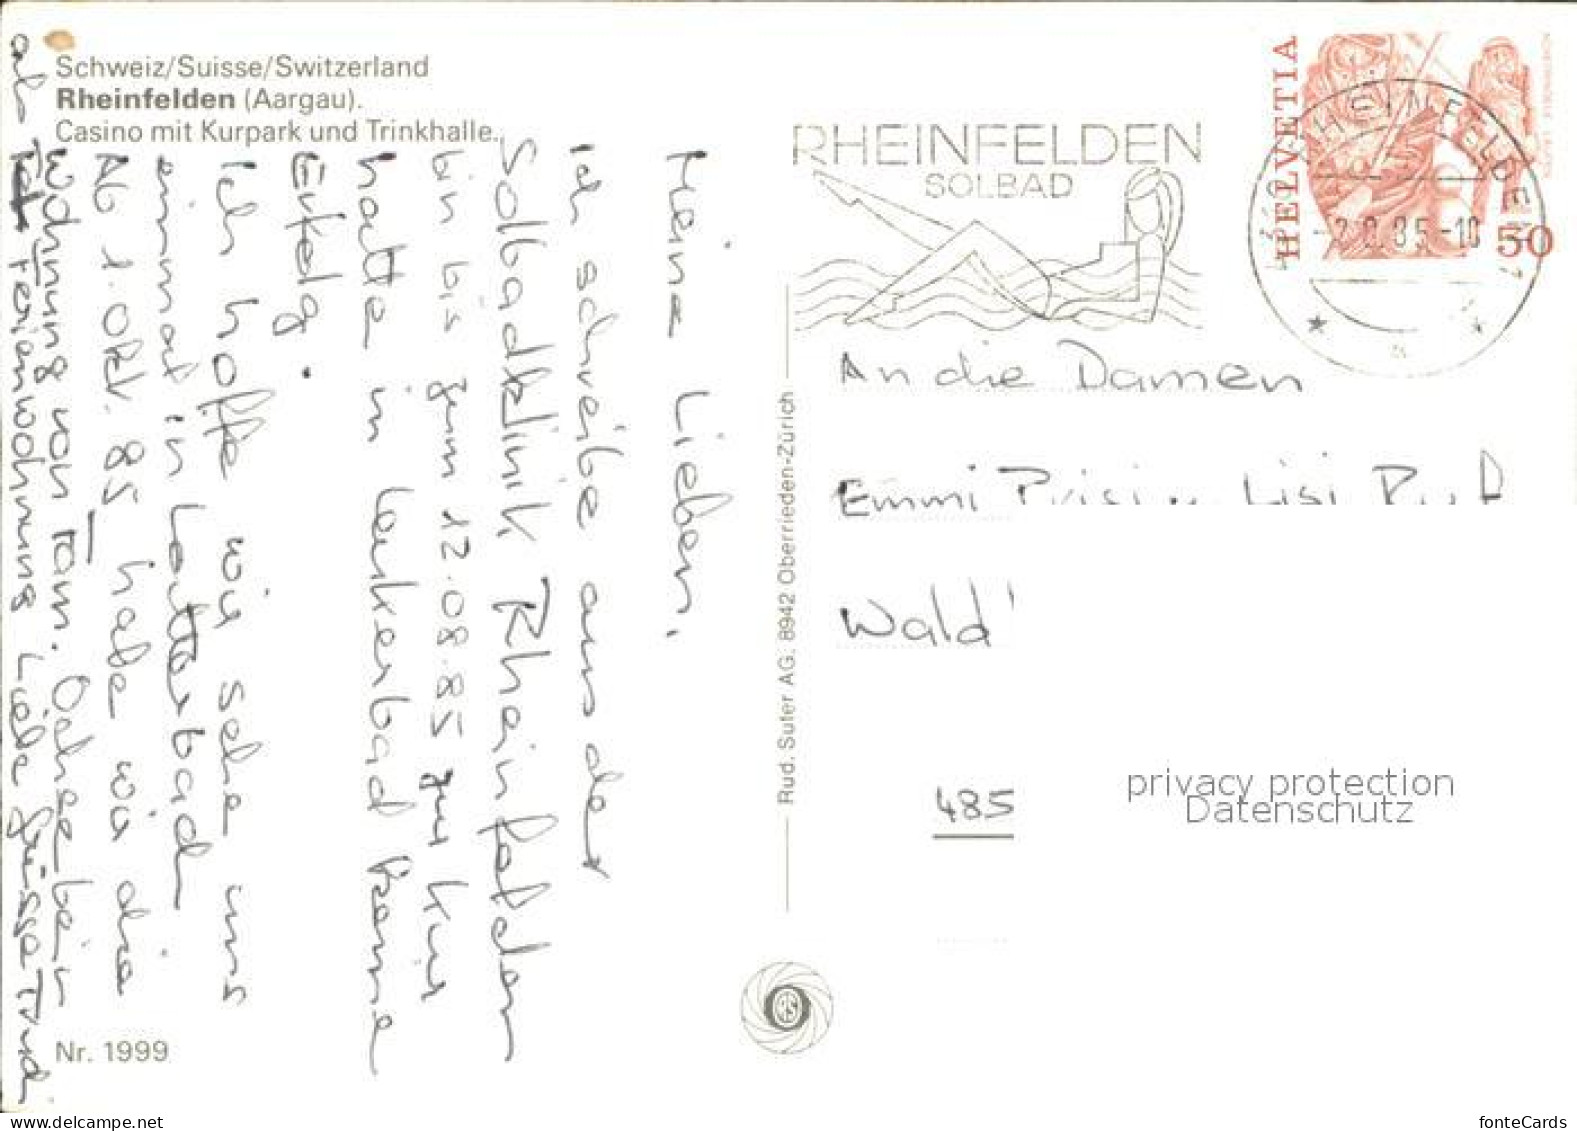 Schweiz/Suisse/Switzerland
Rheinfelden (Aargau).
Casino mit Kurpark und Trinkhalle.
Meine Lieben,
Ich schreibe aus der
Solbadklinik Rheinfelden
bin bis zum 12.08.85 zur Kur
hatte in Leukerbad keine
Erfolg.
Ich hoffe wir sehe uns
einmal in
Ab 1. Okt. 85 habe wir die
Wohnung von
als Ferienwohnung Liebe Grüsse Trudi
Nr. 1999
Rud. Suter AG, 8942 Oberrieden-Zürich
RHEINFELDEN
SOLBAD
HELVETIA
50
RHEINFELDEN 1
An die Damen
Emmi Lisi
Wald
485
privacy protection
Datenschutz
www.delcampe.net
fonteCards